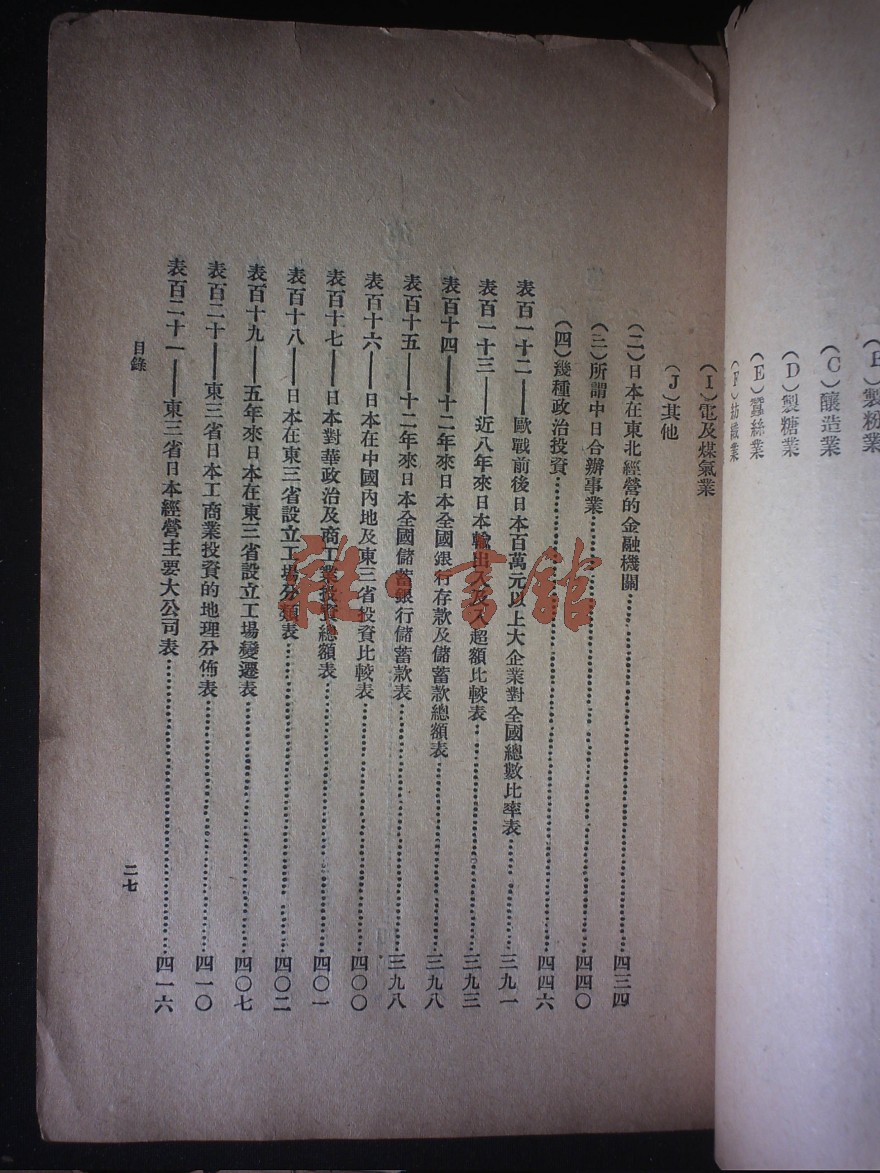 製粉業
(C)釀造業
(D)製糖業
(E)蠶絲業
(F)紡織業
(I)電及煤氣業
(J)其他
(二)日本在東北經營的金融機關……四三四
(三)所謂中日合辦事業……四四〇
(四)幾種政治投資……四四六
表百一十二——歐戰前後日本百萬元以上大企業對全國總數比率表……三九一
表百一十三——近八年來日本輸出入及入超額比較表……三九三
表百十四——十二年來日本全國銀行存款及儲蓄款總額表……三九八
表百十五——十二年來日本全國儲蓄銀行儲蓄款表……三九八
表百十六——日本在中國內地及東三省投資比較表……四〇〇
表百十七——日本對華政治及商工業投資總額表……四〇一
表百十八——日本在東三省設立工場分類表……四〇二
表百十九——五年來日本在東三省設立工場變遷表……四〇七
表百二十——東三省日本工商業投資的地理分佈表……四一〇
表百二十一——東三省日本經營主要大公司表……四一六
目錄
二七